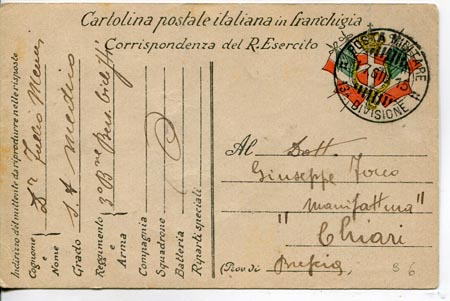 Cartolina postale italiana in franchigia
Corrispondenza del R. Esercito
POSTA MILITARE
13ª DIVISIONE
Indirizzo del mittente da riprodurre nelle risposte
Cognome e Nome Dr Tullio
Grado S. T. Medico
Reggimento e Arma 3º Bne Bers. Ciclisti
Compagnia
Squadrone
Batteria
Riparti speciali
Al Dott.
Giuseppe
"Manifattura"
Chiari
(Prov di Brescia
S 6